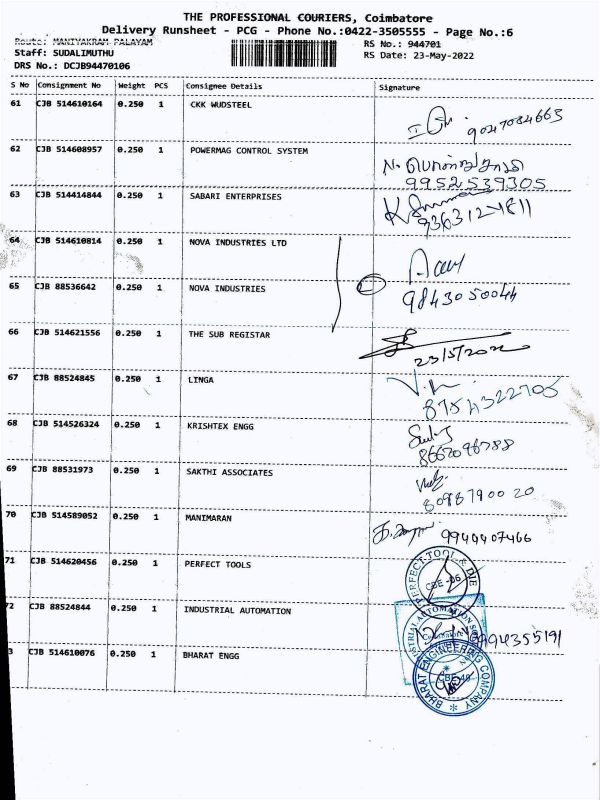 THE PROFESSIONAL COURIERS, Coimbatore
Delivery Runsheet - PCG - Phone No.:0422-3505555 - Page No.:6
Route: MANIYAKRAM PALAYAM
RS No.: 944701
Staff: SUDALIMUTHU
RS Date: 23-May-2022
DRS No.: DCJB94470106
S No Consignment No Weight PCS Consignee Details Signature
61 CJB 514610164 0.250 1 CKK WUDSTEEL
9047084663
62 CJB 514608957 0.250 1 POWERMAG CONTROL SYSTEM
9952539305
63 CJB 514414844 0.250 1 SABARI ENTERPRISES
9363124811
64 CJB 514610814 0.250 1 NOVA INDUSTRIES LTD
65 CJB 88536642 0.250 1 NOVA INDUSTRIES
9843050044
66 CJB 514621556 0.250 1 THE SUB REGISTAR
23/5/2022
67 CJB 88524845 0.250 1 LINGA
8754322705
68 CJB 514526324 0.250 1 KRISHTEX ENGG
8667096788
69 CJB 88531973 0.250 1 SAKTHI ASSOCIATES
8098790020
70 CJB 514589052 0.250 1 MANIMARAN
9944407466
71 CJB 514620456 0.250 1 PERFECT TOOLS
PERFECT TOOL & DIE
CBE - 06
72 CJB 88524844 0.250 1 INDUSTRIAL AUTOMATION
9994355191
3 CJB 514610076 0.250 1 BHARAT ENGG
BHARAT ENGINEERING COMPANY